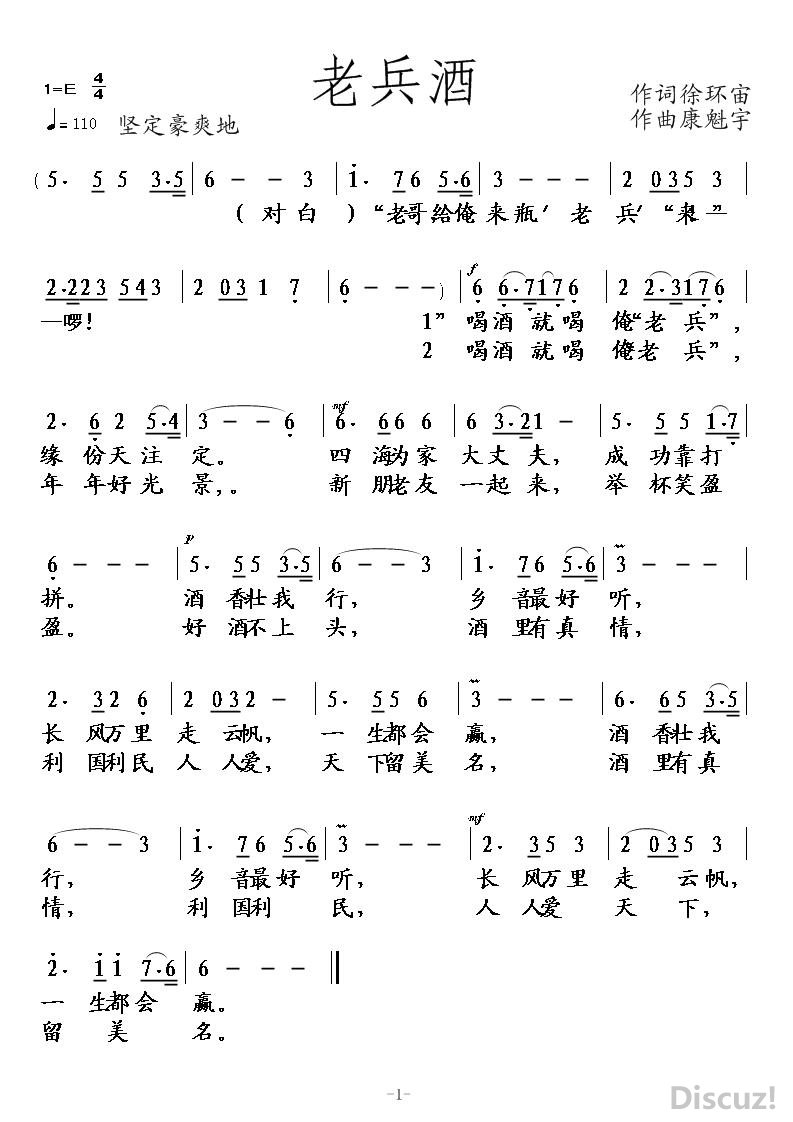 老兵酒
1=E 4/4
作词徐环宙
♩=110 坚定豪爽地
作曲康魁宇
(5· 5 5 3·5 | 6 - - 3 | 1· 7 6 5·6 | 3 - - - | 2 0 3 5 3 |
(对白)“老哥,给俺来瓶‘老兵’“来—”
2·2 2 3 5 4 3 | 2 0 3 1 7 | 6 - - -) | f 6 6·7 1 7 6 | 2 2·3 1 7 6 |
—啰! 1” 喝酒就喝 俺“老兵”,
2 喝酒就喝 俺老兵”,
2· 6 2 5·4 | 3 - - 6 | mf 6· 6 6 6 | 6 3·2 1 - | 5· 5 5 1·7 |
缘份天注 定。 四海为家 大丈夫, 成功靠打
年年好光 景,。 新朋老友 一起来, 举杯笑盈
6 - - - | p 5· 5 5 3·5 | 6 - - 3 | 1· 7 6 5·6 | 3 - - - |
拼。 酒香壮我 行, 乡音最好 听,
盈。 好酒不上 头, 酒里有真 情,
2· 3 2 6 | 2 0 3 2 - | 5· 5 5 6 | 3 - - - | 6· 6 5 3·5 |
长风万里 走云帆, 一生都会 赢, 酒香壮我
利国利民 人人爱, 天下留美 名, 酒里有真
6 - - 3 | 1· 7 6 5·6 | 3 - - - | mf 2· 3 5 3 | 2 0 3 5 3 |
行, 乡音最好 听, 长风万里 走云帆,
情, 利国利 民, 人人爱 天下,
2· 1 1 7·6 | 6 - - - ‖
一生都会 赢。
留美 名。
-1-
Discuz!